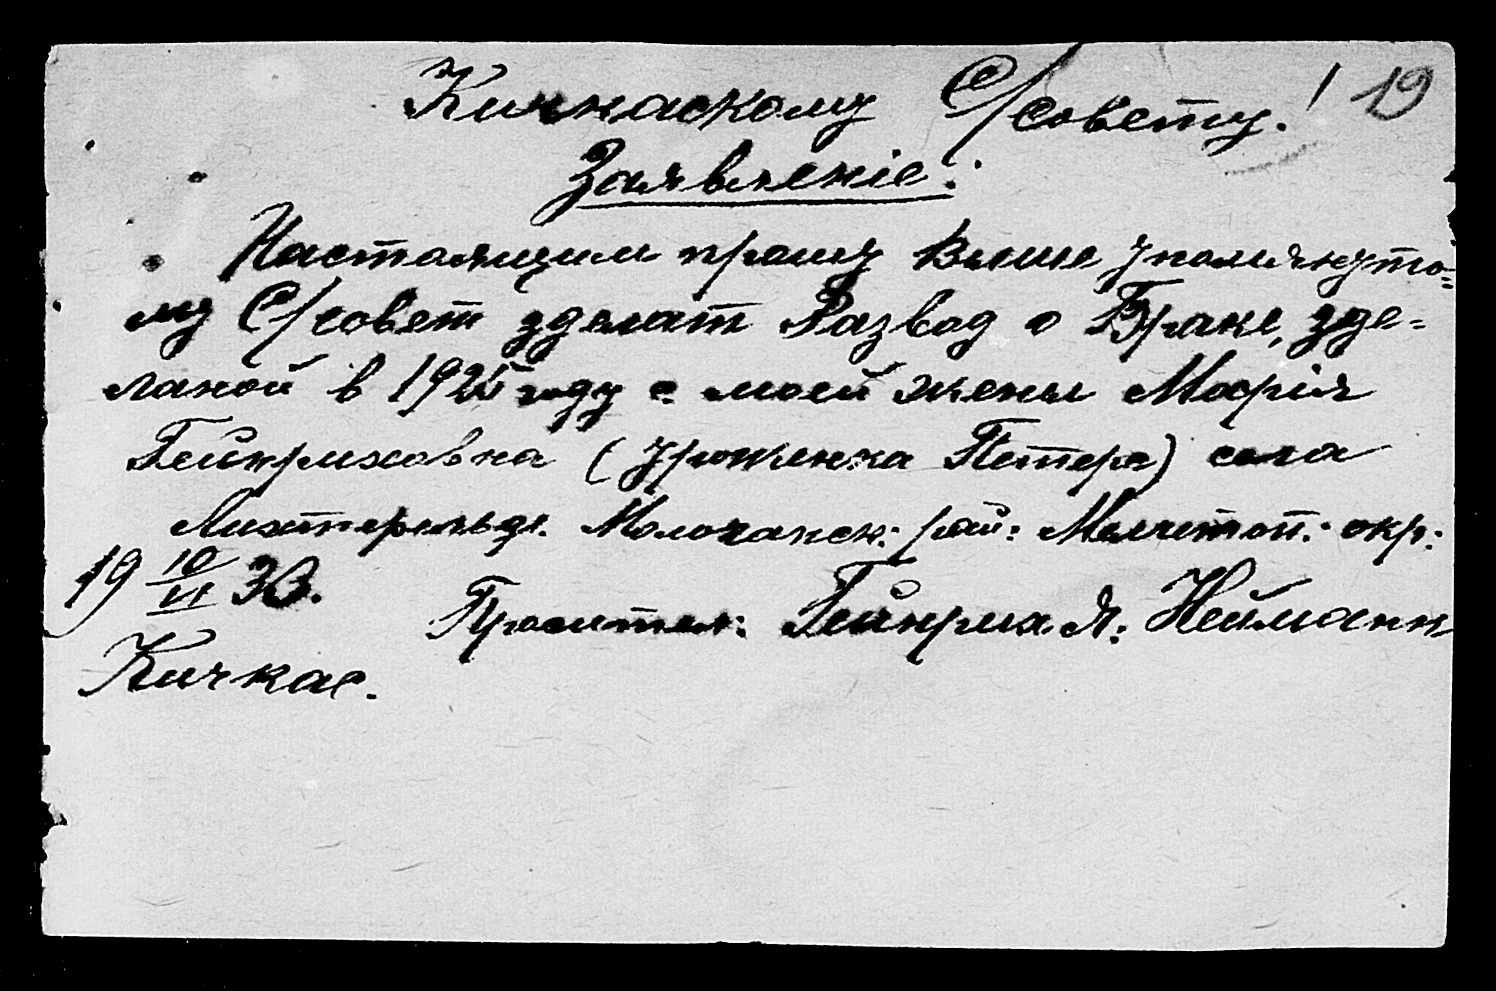 Кичкаскому С/совету! 19
Заявленіе:
Настоящим прошу Выше упомянуто=
му С/совет зделат Развод о Браке, зде-
ланой в году с моей жены Марія
Гейнриховна (уроженка Петерс) села
Лихтфельде. Молочанск: рай: Мелитоп: окр:
19 10/VI 30.
Просител: Гейнрих Я: Нейманн
Кичкас.